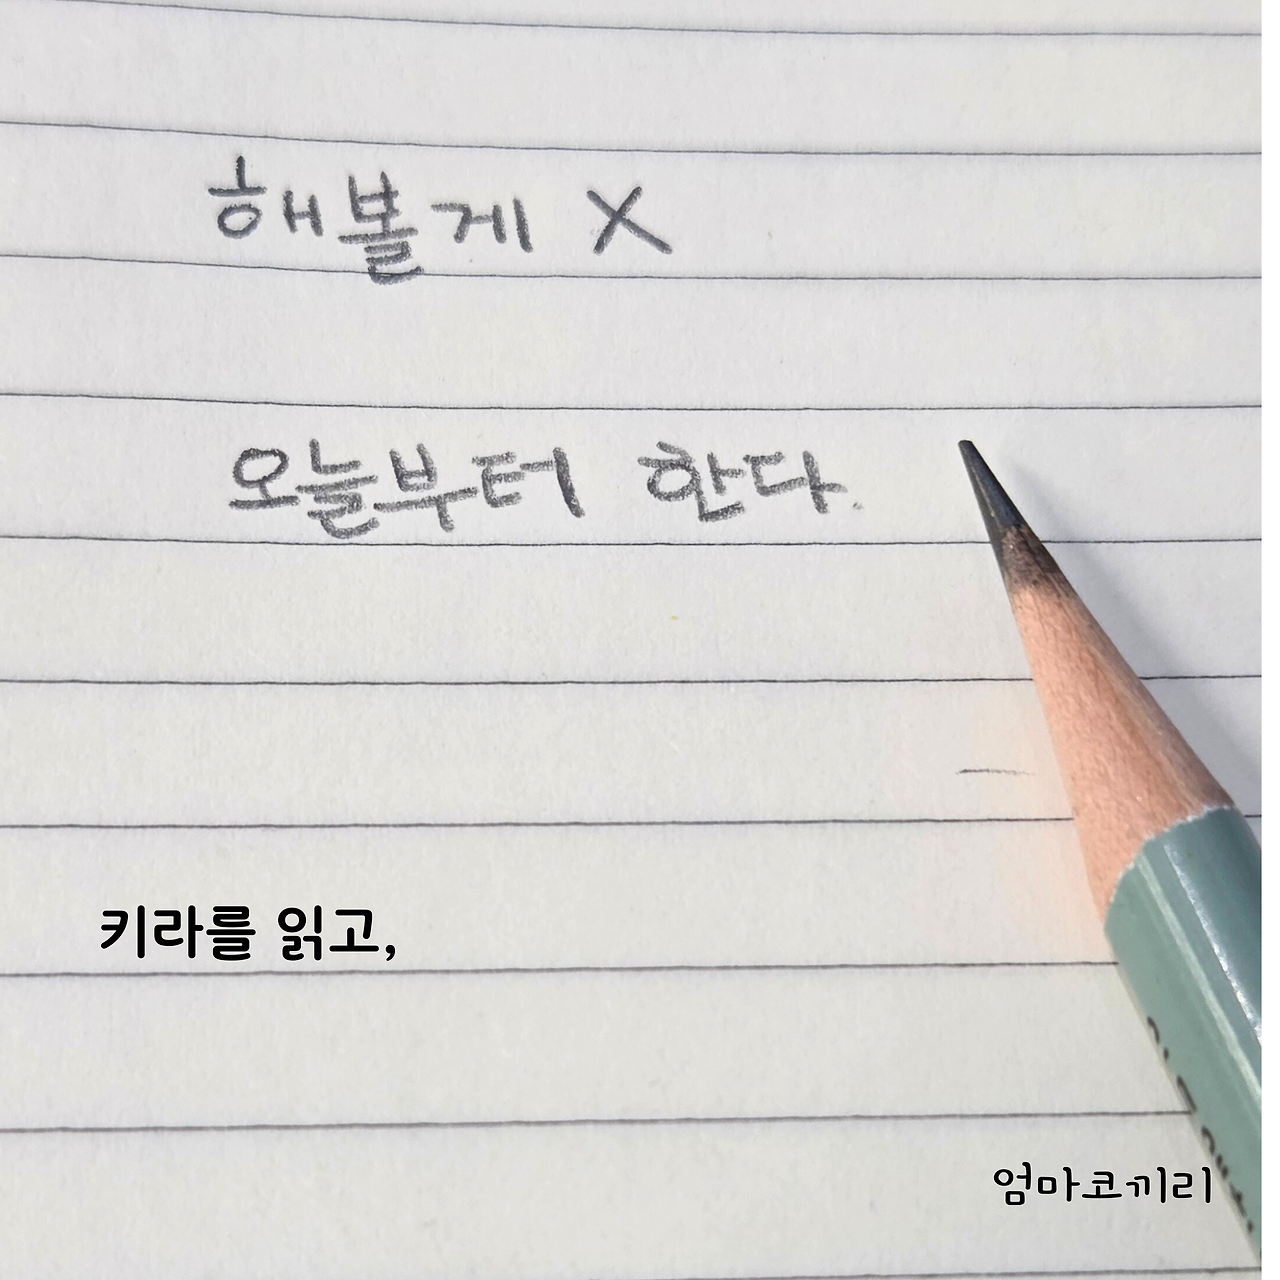 해볼게 X
오늘부터 한다.
키라를 읽고,
엄마코끼리